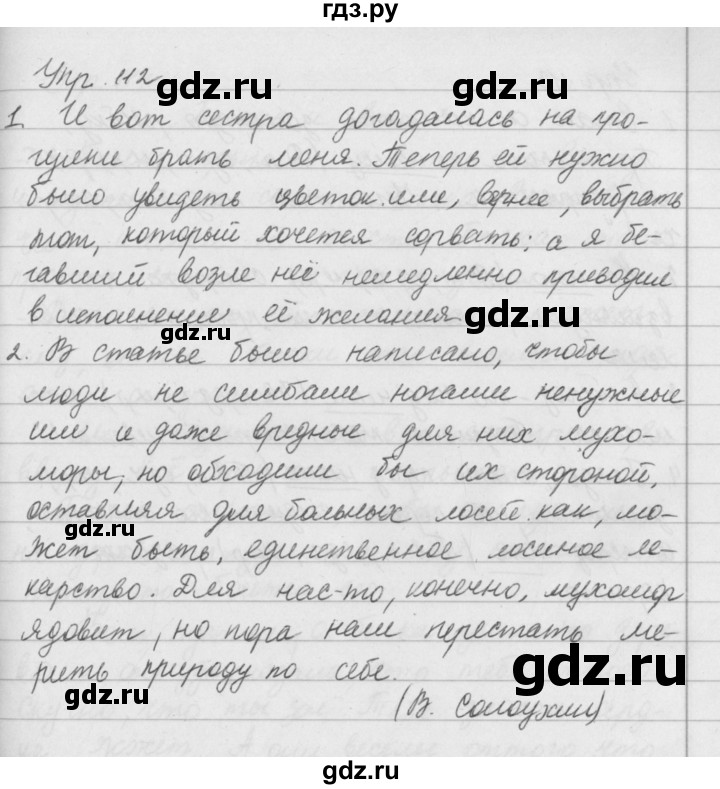 гдз.ру
Упр. 112
gdz.ru
gdz.ru
1. И вот сестра догадалась на про-
гулки брать меня. Теперь ей нужно
было увидеть цветок или, вернее, выбрать
gdz.ru
тот, который хочется сорвать: а я бе-
гавший возле неё немедленно приводил
в исполнение её желания
gdz.ru
gdz.ru
2. В статье было написано, чтобы
люди не сшибали ногами ненужные
им и даже вредные для них мухо-
моры, но обходили бы их стороной,
оставляя для больных лосей как, мо-
gdz.ru
жет быть, единственное лосиное ле-
карство. Для нас-то, конечно, мухомор
ядовит, но пора нам перестать ме-
рить природу по себе.
gdz.ru
gdz.ru
(В. Солоухин)
gdz.ru